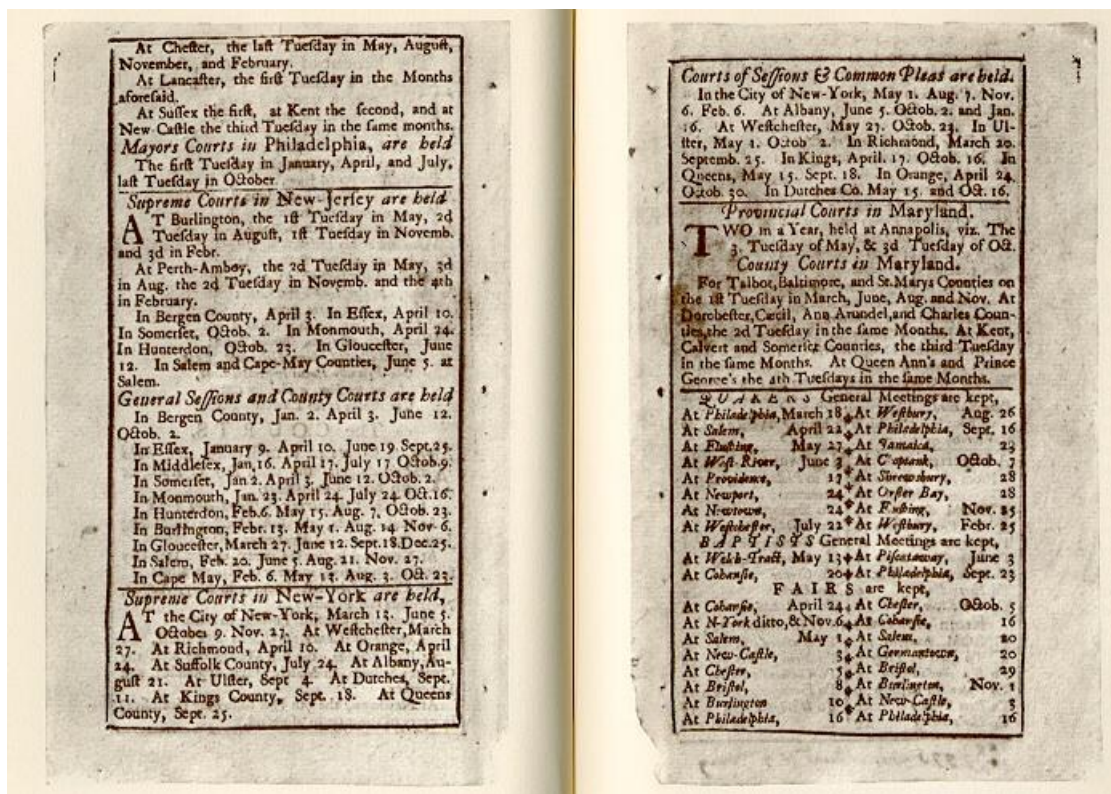 At Cheſter, the laſt Tueſday in May, Auguſt,
November, and February.
At Lancaſter, the firſt Tueſday in the Months
aforeſaid.
At Suſſex the firſt, at Kent the ſecond, and at
New-Caſtle the third Tueſday in the ſame months.
Mayors Courts in Philadelphia, are held
The firſt Tueſday in January, April, and July,
laſt Tueſday in October.
Supreme Courts in New-Jerſey are held
AT Burlington, the 1ſt Tueſday in May, 2d
Tueſday in Auguſt, 1ſt Tueſday in Novemb.
and 3d in Febr.
At Perth-Amboy, the 2d Tueſday in May, 3d
in Aug. the 2d Tueſday in Novemb. and the 4th
in February.
In Bergen County, April 3. In Eſſex, April 10.
In Somerſet, Octob. 2. In Monmouth, April 24.
In Hunterdon, Octob. 23. In Glouceſter, June
12. In Salem and Cape-May Counties, June 5. at
Salem.
General Seſſions and County Courts are held
In Bergen County, Jan. 2. April 3. June 12.
Octob. 2.
In Eſſex, January 9. April 10. June 19 Sept.25.
In Middleſex, Jan.16. April 17. July 17 Octob.9.
In Somerſet, Jan 2. April 3. June 12. Octob. 2.
In Monmouth, Jan. 23. April 24. July 24 Oct.16.
In Hunterdon, Feb.6. May 15. Aug. 7. Octob. 23.
In Burlington, Febr. 13. May 1. Aug. 14. Nov. 6.
In Glouceſter, March 27. June 12. Sept.18.Dec.25.
In Salem, Feb. 20. June 5. Aug. 21. Nov. 27.
In Cape May, Feb. 6. May 13. Aug. 3. Oct. 23.
Supreme Courts in New-York are held,
AT the City of New-York, March 13. June 5.
Octobes 9. Nov. 27. At Weſtcheſter, March
27. At Richmond, April 10. At Orange, April
24. At Suffolk County, July 24. At Albany, Au-
guſt 21. At Ulſter, Sept 4. At Dutches, Sept.
11. At Kings County, Sept. 18. At Queens
County, Sept. 25.
Courts of Seſſions & Common Pleas are held.
In the City of New-York, May 1. Aug. 7. Nov.
6. Feb. 6. At Albany, June 5. Octob. 2. and Jan.
16. At Weſtcheſter, May 27. Octob. 23. In Ul-
ſter, May 1. Octob 2. In Richmond, March 20.
Septemb. 25. In Kings, April. 17. Octob. 16. In
Queens, May 15. Sept. 18. In Orange, April 24.
Octob. 30. In Dutches Co. May 15. and Oct. 16.
Provincial Courts in Maryland.
TWO in a Year, held at Annapolis, viz. The
3. Tueſday of May, & 3d Tueſday of Oct.
County Courts in Maryland.
For Talbot, Baltimore, and St.Marys Counties on
the 1ſt Tueſday in March, June, Aug. and Nov. At
Dorcheſter, Cæcil, Ann Arundel, and Charles Coun-
ties, the 2d Tueſday in the ſame Months. At Kent,
Calvert and Somerſet Counties, the third Tueſday
in the ſame Months. At Queen Ann's and Prince
George's the 4th Tueſdays in the ſame Months.
QUAKERS General Meetings are kept,
At Philadelphia, March 18 At Weſtbury, Aug. 26
At Salem, April 22 At Philadelphia, Sept. 16
At Fluſhing, May 27 At Jamaica, 23
At Weſt-River, June 3 At Captank, Octob. 7
At Providence, 17 At Shrewsbury, 28
At Newport, 24 At Oyſter Bay, 28
At Newtown, 24 At Fluſhing, Nov. 25
At Weſtcheſter, July 22 At Weſtbury, Febr. 25
BAPTISTS General Meetings are kept,
At Welch-Tract, May 13 At Piſcataway, June 3
At Cohanſie, 20 At Philadelphia, Sept. 23
FAIRS are kept,
At Cohanſie, April 24 At Cheſter, Octob. 5
At N-York ditto, & Nov.6 At Cohanſie, 16
At Salem, May 1 At Salem, 20
At New-Caſtle, 3 At Germantown, 20
At Cheſter, 5 At Briſtol, 29
At Briſtol, 8 At Burlington, Nov. 1
At Burlington 10 At New-Caſtle, 3
At Philadelphia, 16 At Philadelphia, 16